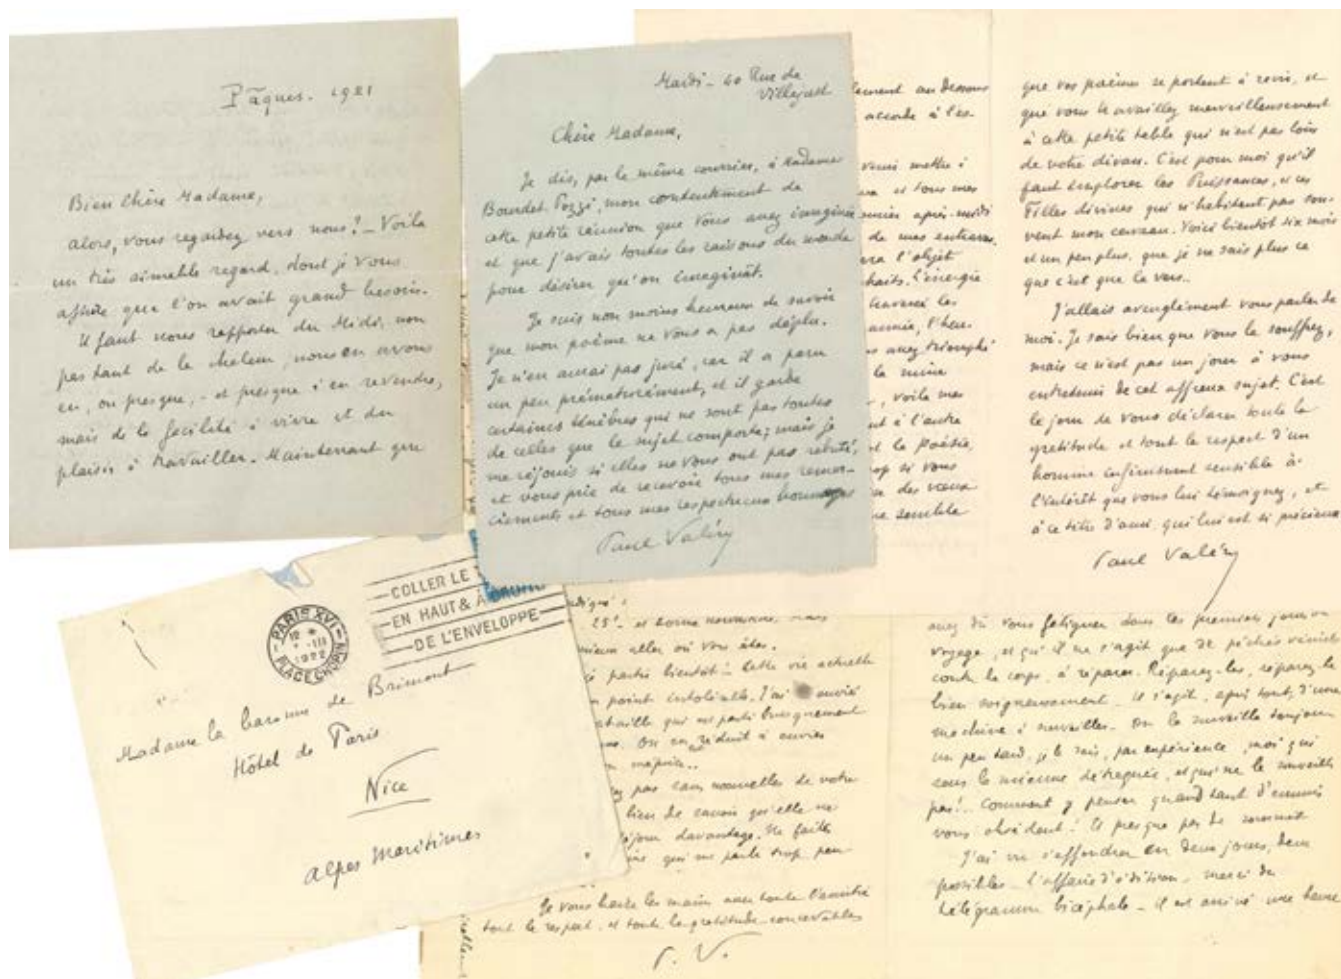 Pâques. 1921
Bien Chère Madame,
alors, vous regardez vers nous? - Voilà
un très aimable regard, dont je vous
assure que l'on avait grand besoin.
Il faut nous rapporter du Midi, non
pas tant de la chaleur, nous en avons
eu, ou presque, - et presque à en revendre,
mais de la facilité à vivre et du
plaisir à travailler. Maintenant que
Mardi - 40 Rue de
Villejust
Chère Madame,
Je dis, par le même courrier, à Madame
Bourdet-Pozzi, mon contentement de
cette petite réunion que vous avez imaginée
et que j'avais toutes les raisons du monde
pour désirer qu'on imaginât.
Je suis non moins heureux de savoir
que mon poème ne vous a pas déplu.
Je n'en aurai pas juré, car il a paru
un peu prématurément, et il garde
certaines ténèbres qui ne sont pas toutes
de celles que le sujet comporte; mais je
me réjouis si elles ne vous ont pas rebuté,
et vous prie de recevoir tous mes remer-
ciements et tous mes respectueux hommages
Paul Valéry
lement au dessous
accorde à l'es-
venu mettre à
et tous mes
après-midi
de mes entraves.
l'objet
L'énergie
les
année, l'heu-
avez triomphé
la
, voilà mes
à l'autre
et la Poésie,
si vous
des vœux
semble
que vos poèmes se portent à ravir, et
que vous travaillez merveilleusement
à cette petite table qui n'est pas loin
de votre divan. C'est pour moi qu'il
faut implorer les Puissances, et ces
Filles divines qui n'habitent pas sou-
vent mon cerveau. Voici bientôt six mois
et un peu plus, que je ne sais plus ce
que c'est que le vers..
J'allais aveuglément vous parler de
moi. Je sais bien que vous le souffrez,
mais ce n'est pas un jour à vous
entretenir de cet affreux sujet. C'est
le jour de vous déclarer toute la
gratitude et tout le respect d'un
homme infiniment sensible à
l'intérêt que vous lui témoignez, et
à ce titre d'ami, qui lui est si précieux
Paul Valéry
COLLER LE
EN HAUT & À DROITE
DE L'ENVELOPPE
PARIS XVI
12
III
1922
PLACE CHOPIN
Madame la baronne de Brimont
Hôtel de Paris
Nice
Alpes Maritimes
25°
mieux aller où vous êtes.
partir bientôt! Cette vie actuelle
point intolérable. J'ai
qui est parti brusquement
On en est réduit à
pas sans nouvelles de votre
bien de savoir qu'elle ne
davantage. Ne faites
qui me parle trop peu
Je vous baise les mains avec toute l'amitié
tout le respect, et toute la gratitude concevables
P. V.
avez dû vous fatiguer dans ces premiers jours
voyage, et qu'il ne s'agit que de péchés véniels
contre le corps, à réparer. Réparez-les, réparez-le
bien soigneusement. Il s'agit, après tout, d'une
machine à surveiller. On la surveille toujours
un peu tard, je le sais, par expérience, moi qui
sens la mienne détraquée, et qui ne la surveille
pas!.. Comment y penser quand tant d'ennuis
vous obsèdent! Et presque pas de sommeil
J'ai vu s'effondrer en deux jours, deux
possibles - l'affaire d'édition - merci du
télégramme bicéphale - il est arrivé une heure